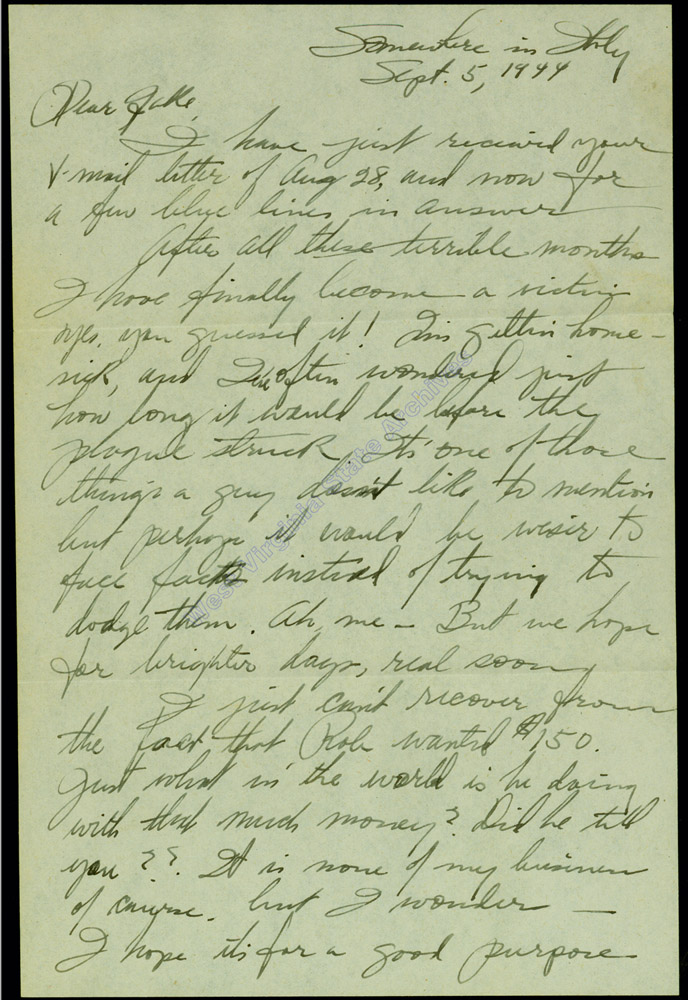 Somewhere in Italy
Sept. 5, 1944
Dear Folks,
I have just received your
V-mail letter of Aug 28, and now for
a few blue lines in answer
After all these terrible months
I have finally become a victim
yes, you guessed it! I'm gettin home-
sick, and I've often wondered just
how long it would be before the
plague struck. It's one of those
things a guy doesn't like to mention
but perhaps it would be wiser to
face facts instead of trying to
dodge them. Ah, me - But we hope
for brighter days, real soon
I just can't recover from
the fact that Rob wanted $150.
Just what in the world is he doing
with that much money? Did he tell
you ??. It is none of my business
of course. but I wonder —
I hope its for a good purpose
West Virginia State Archives